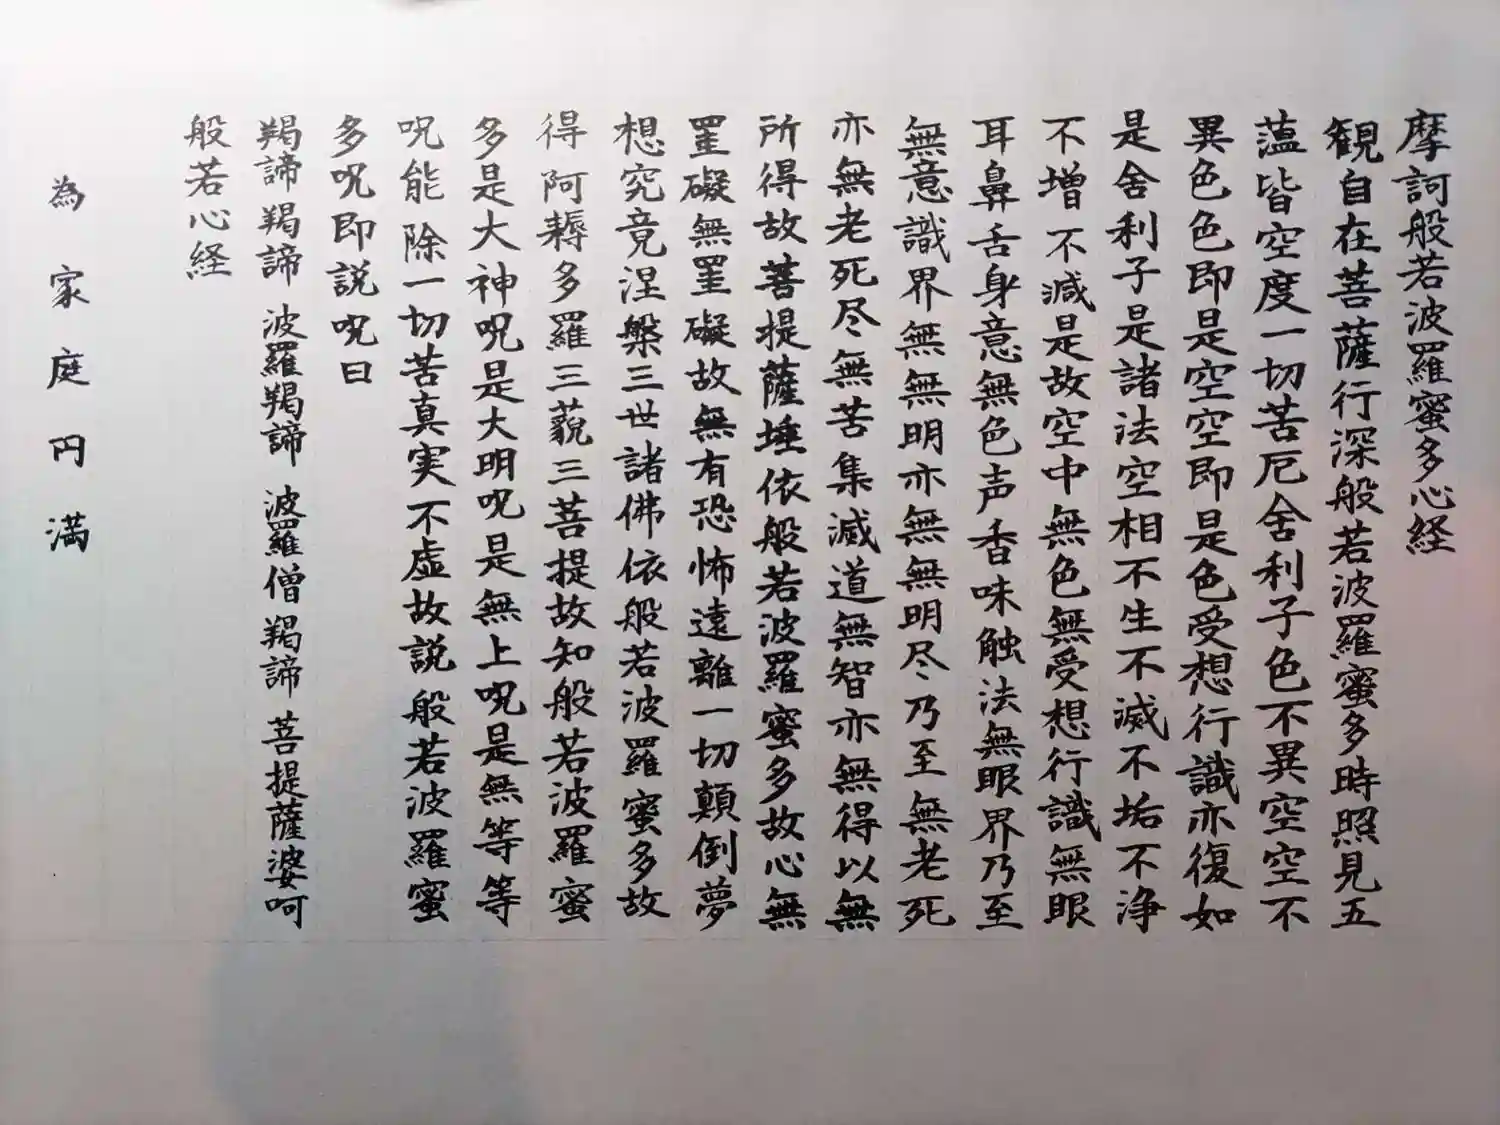 摩訶般若波羅蜜多心経
観自在菩薩行深般若波羅蜜多時照見五
薀皆空度一切苦厄舎利子色不異空空不
異色色即是空空即是色受想行識亦復如
是舎利子是諸法空相不生不滅不垢不浄
不増不減是故空中無色無受想行識無眼
耳鼻舌身意無色声香味触法無眼界乃至
無意識界無無明亦無無明尽乃至無老死
亦無老死尽無苦集滅道無智亦無得以無
所得故菩提薩埵依般若波羅蜜多故心無
罣礙無罣礙故無有恐怖遠離一切顛倒夢
想究竟涅槃三世諸佛依般若波羅蜜多故
得阿耨多羅三藐三菩提故知般若波羅蜜
多是大神呪是大明呪是無上呪是無等等
呪能除一切苦真実不虚故説般若波羅蜜
多呪即説呪曰
羯諦羯諦 波羅羯諦 波羅僧羯諦 菩提薩婆呵
般若心経
為家庭円満